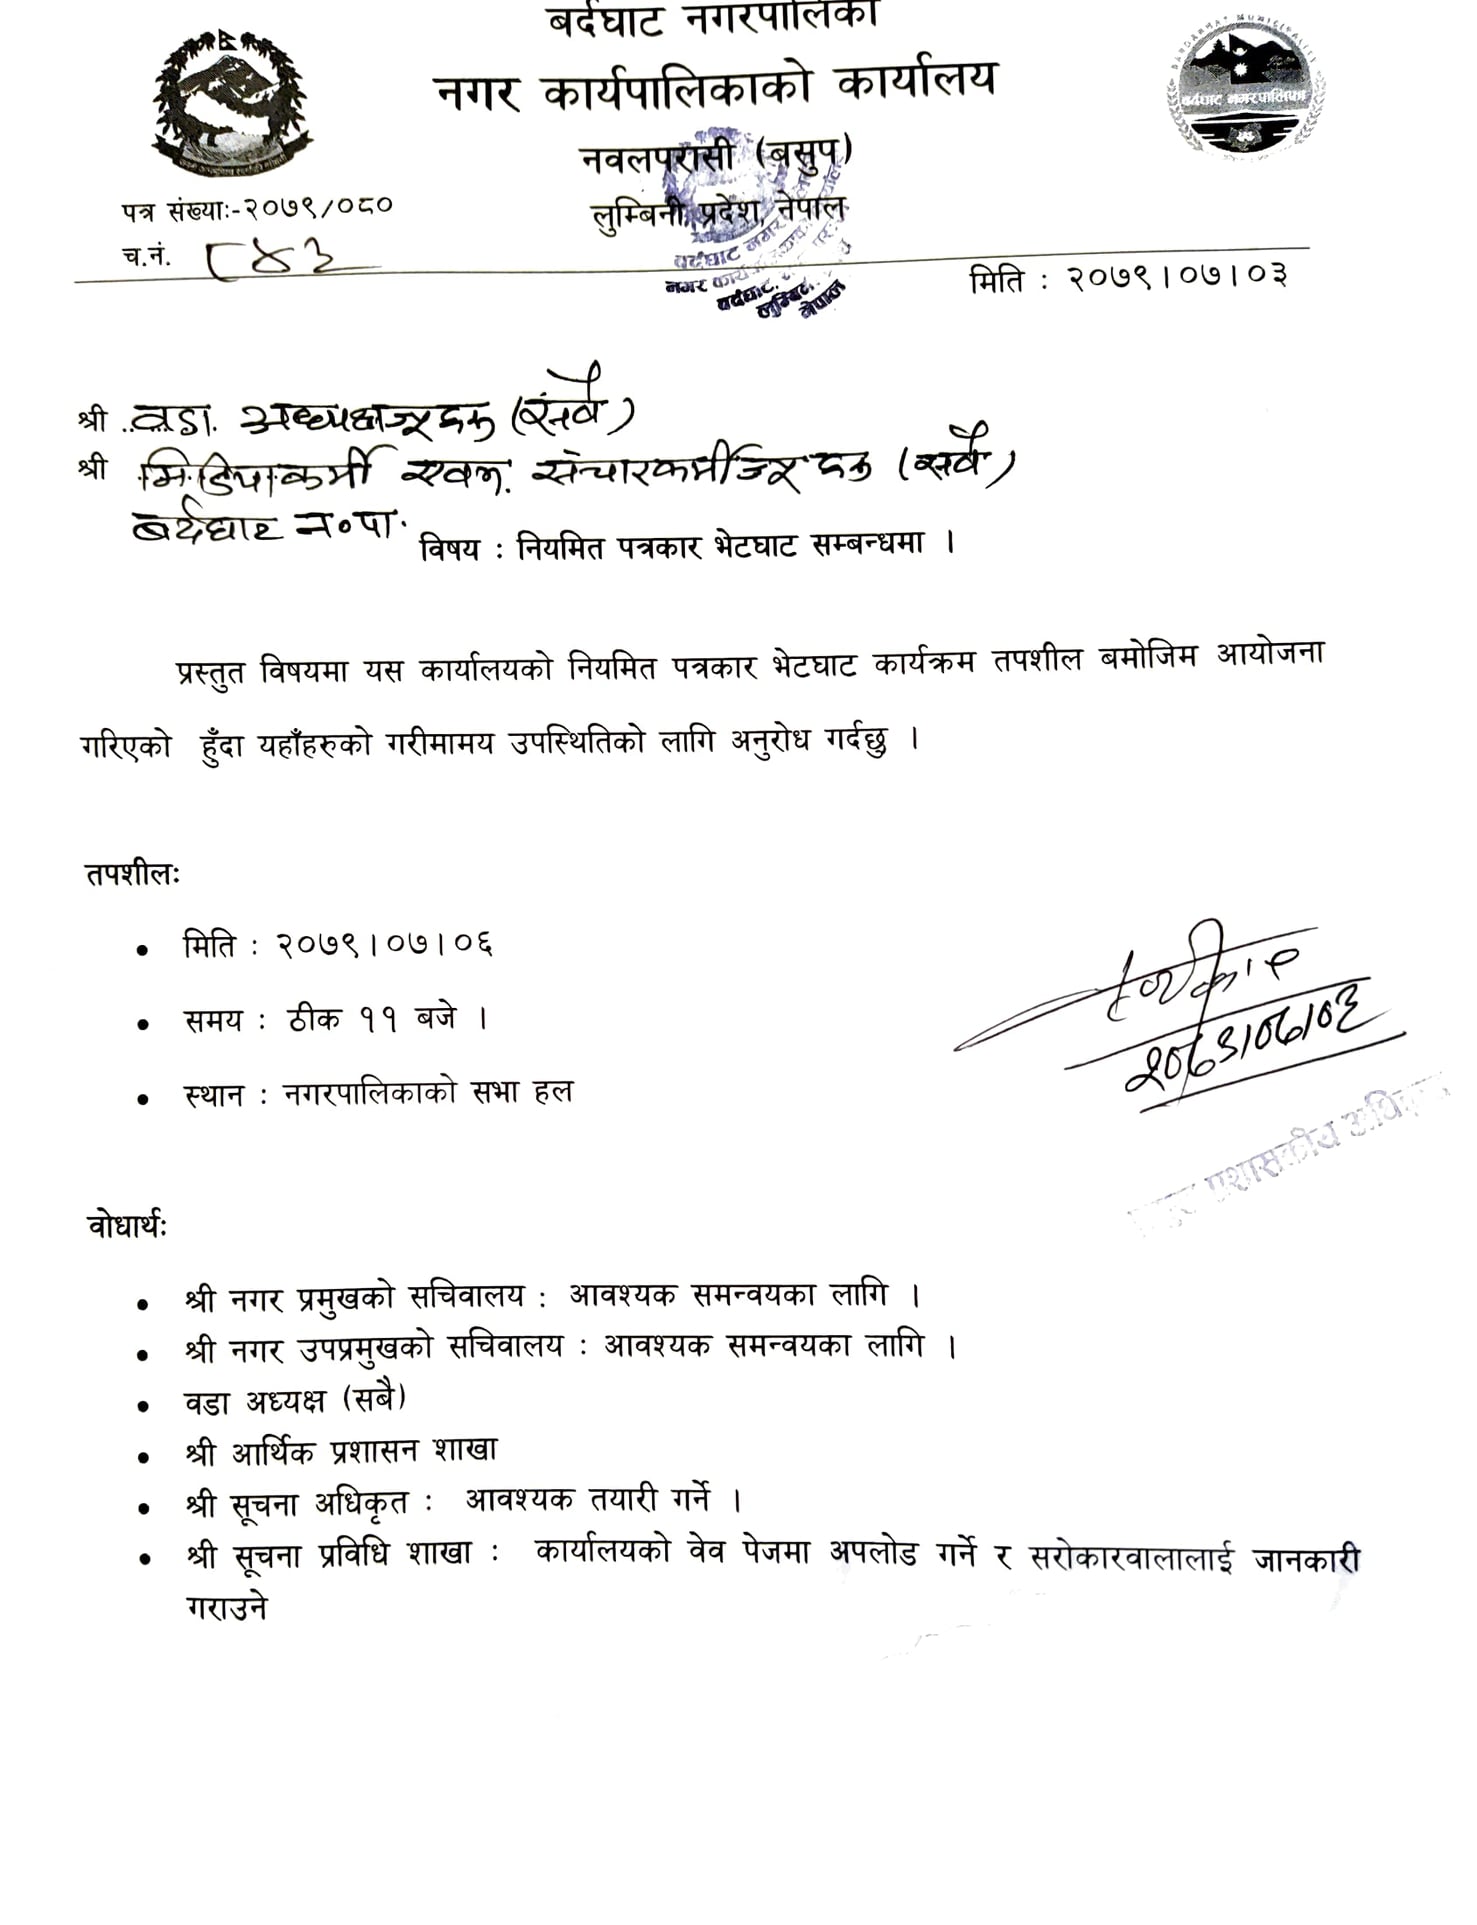 बर्दघाट नगरपालिका
नगर कार्यपालिकाको कार्यालय
नवलपरासी (बसुप)
लुम्बिनी प्रदेश, नेपाल
बर्दघाट नगरपालिका
पत्र संख्याः-२०७९/०८०
च.नं. ८४३
मिति : २०७९।०७।०३
श्री वडा अध्यक्षज्यूहरु (सबै)
श्री मिडियाकर्मी एवम् संचारकर्मीज्यूहरु (सबै)
बर्दघाट न०पा.
विषय : नियमित पत्रकार भेटघाट सम्बन्धमा ।
प्रस्तुत विषयमा यस कार्यालयको नियमित पत्रकार भेटघाट कार्यक्रम तपशील बमोजिम आयोजना
गरिएको हुँदा यहाँहरुको गरीमामय उपस्थितिको लागि अनुरोध गर्दछु ।
तपशीलः
• मिति : २०७९।०७।०६
• समय : ठीक ११ बजे ।
• स्थान : नगरपालिकाको सभा हल
२०७९/०७/०३
प्रशासकीय अधिकृत
वोधार्थः
• श्री नगर प्रमुखको सचिवालय : आवश्यक समन्वयका लागि ।
• श्री नगर उपप्रमुखको सचिवालय : आवश्यक समन्वयका लागि ।
• वडा अध्यक्ष (सबै)
• श्री आर्थिक प्रशासन शाखा
• श्री सूचना अधिकृत : आवश्यक तयारी गर्ने ।
• श्री सूचना प्रविधि शाखा : कार्यालयको वेव पेजमा अपलोड गर्ने र सरोकारवालालाई जानकारी
गराउने